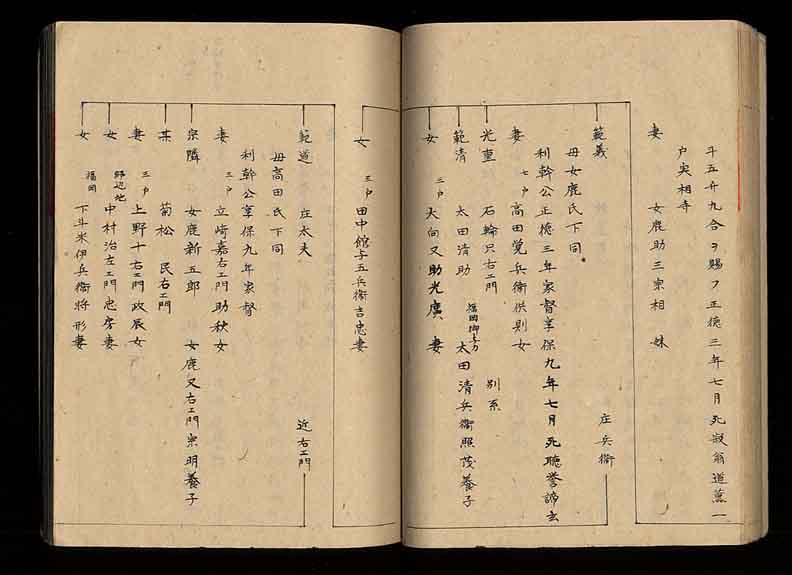 斗五升九合ヲ賜フ正徳三年七月死凝翁道薫一
戸実相寺
妻　女鹿助三宗相　妹
範義　庄兵衛
母女鹿氏下同
利幹公正徳三年家督享保九年七月死聴誉諦玄
妻　七戸　高田覚兵衛供則女
光重　石輪只右エ門　別系
範清　太田清助　福岡御与力　太田清兵衛照茂養子
女　三戸　大向又助光広　妻
女　三戸　田中館与五兵衛吉忠妻
範道　庄太夫　近右エ門
母高田氏下同
利幹公享保九年家督
妻　三戸　立崎嘉右エ門助秋女
宗隣　女鹿新五郎　女鹿又右エ門宗明養子
某　菊松　民右エ門
妻　三戸　上野十右エ門政辰女
女　野辺地　中村治左エ門忠房妻
女　福岡　下斗米伊兵衛将形妻